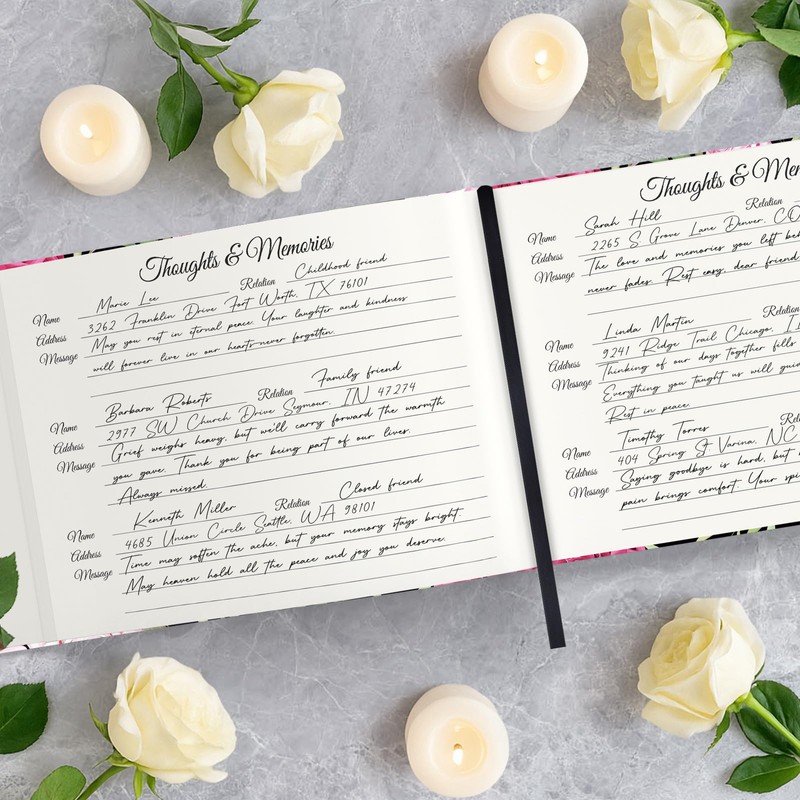 Thoughts & Memories
Name Marie Lee Relation Childhood friend
Address 3262 Franklin Drive Fort Worth, TX 76101
Message May you rest in eternal peace. Your laughter and kindness
will forever live in our hearts-never forgotten.
Name Barbara Roberts Relation Family friend
Address 2977 SW Church Drive Seymour, IN 47274
Message Grief weighs heavy, but we'll carry forward the warmth
you gave. Thank you for being part of our lives.
Always missed.
Name Kenneth Miller Relation Closed friend
Address 4685 Union Circle Seattle, WA 98101
Message Time may soften the ache, but your memory stays bright.
May heaven hold all the peace and joy you deserve.
Thoughts & Mem
Name Sarah Hill Relation
Address 2265 S Grove Lane Denver, CO
Message The love and memories you left beh
never fades. Rest easy, dear friend
Name Linda Martin Relation
Address 9241 Ridge Trail Chicago, I
Message Thinking of our days together fills
Everything you taught us will gui
Rest in peace.
Name Timothy Torres Rela
Address 404 Spring St. Varina, NC
Message Saying goodbye is hard, but
pain brings comfort. Your spi